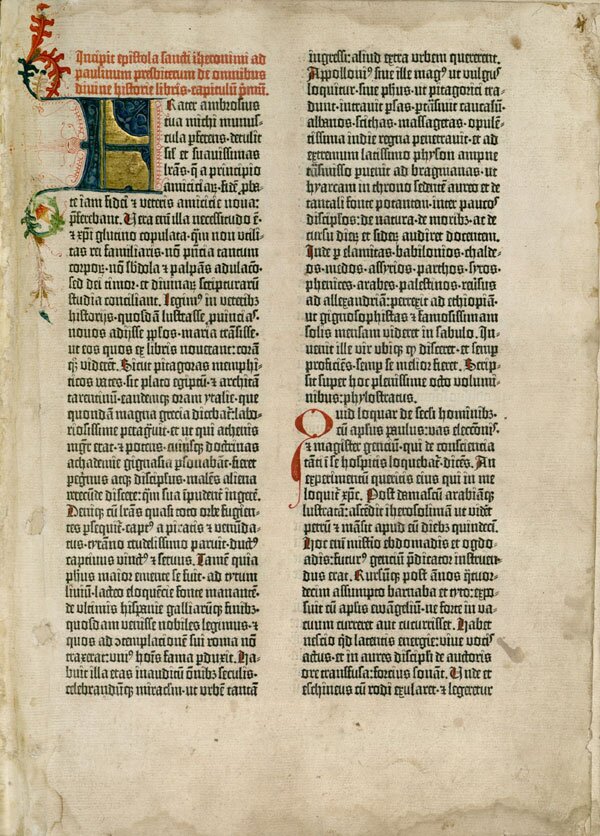 Incipit epistola sancti iheronimi ad
paulinum presbiterum de omnibus
divine historie libris·capitulū p̄mū.
Frater ambrosius
tua michi munus-
cula p̄ferens·detulit
sil̄ et suavissimas
lr̄as·q̄ a principio
amiciciaꝝ·fidē ꝓba-
te iam fidei ⁊ veteris amicicie nova:
p̄ferebant. Vera eni illa necessitudo ē·
⁊ xp̄i glutino copulata·quā non vtili-
tas rei familiaris·nō p̄ntia tantum
corpoꝝ·nō sb̄dola ⁊ palpās adulacō·
sed dei timor·et divinaꝝ scripturarū
studia conciliant. Legim⁹ in veterib⁹
historijs·quosdā lustrasse ꝓvincias·
novos adijsse pp̄los·maria trāsisse·
ut eos quos ex libris noverant: coram
qꝫ viderēt. Sicut pitagoras memphi-
ticos vates·sic plato egiptū·⁊ architā
tarentinū·eandemqꝫ oram ytalie·que
quondā magna grecia dicebat̄: labo-
riosissime peragͣvit·et ut qui athenis
mgr̄ erat·⁊ potens·cuiusqꝫ doctrinas
achademie gignasia ꝑsonabāt·fieret
peḡnus atqꝫ discipulus·malēs aliena
verecūde discere: qͣm sua īpudent̄ ingerē.
Deniqꝫ cū lr̄as quasi toto orbe fugien-
tes ꝑsequit̄·capt⁹ a piratis ⁊ venūda-
tus·tyrāno crudelissimo paruit·duct⁹
captivus vinct⁹ ⁊ servus. Tamē quia
ph̄us maior emente se fuit·ad tytum
liviū·lacteo eloquēcie fonte manantē·
de vltimis hispanie galliarūqꝫ finib⁹·
quosdam venisse nobiles legimus·⁊
quos ad ꝯtemplationē sui roma nō
traxerat: vni⁹ hoīs fama ꝑduxit. Ha-
buit illa etas inauditū oīnib⁹ seculis·
celebrandūqꝫ miraclm̄·ut urbē tantā
ingressi: aliud extra urbem quererent.
Apolloni⁹ sive ille mag⁹ ut vulgus
loquitur·sive ph̄us·ut pitagorici tra-
dunt·intravit ꝑsas·ꝑtrāsivit caucasū·
albanos·scithas·massagetas·opulē-
tissima indie regna penetravit·et ad
extremum latissimo physon ampne
trāsmisso ꝑvenit ad bragmanas·ut
hyarcam in throno sedentē aureo et de
tantali fonte potantem·inter paucos
discipl̄os: de natura·de moribꝫ·ac de
cursu dieꝝ et sideꝝ audiret docentem.
Inde ꝑ elamitas·babilonios·chalde-
os·medos·assyrios·parthos·syros·
phenices·arabes·palestinos·reversus
ad allexandriā: ꝑrexit ad ethiopiā·
ut gignosophistas ⁊ famosissimam
solis mensam videret in sabulo. In-
venit ille vir ubiqꝫ qͦ disceret·et semꝑ
proficiēs·semꝑ se melior fieret. Scrip-
sit super hoc plenissime octo volumi-
nibus: phylostratus.
Quid loquar de secl̄i hominibꝫ·
cū apl̄us paulus: vas electionīs·
⁊ magister gentiū·qui de consciencia
tāti ī se hospitis loquebat̄·dicēs. An
experimentū queritis eius qui in me
loquit̄ xp̄c. Post damascū arabiāqꝫ
lustratā: ascēdit iherosolimā ut videt
petrū ⁊ māsit apud eū diebꝫ quindeci.
Hoc enī misterio ebdomadis et ogdo-
adis: futur⁹ gentiū p̄dicator instruen-
dus erat. Rursūqꝫ post ānos qͣtuor-
decim assumpto barnaba et tyto: expo-
suit cū apl̄is evangeliū·ne forte in va-
cuum curreret aut cucurrisset. Habet
nescio qͥd latentis energie: vive vocis
actus·et in aures discipl̄i de auctoris
ore transfusa: forcius sonat. Vnde et
eschineus cū rodi exularet·⁊ legeretur